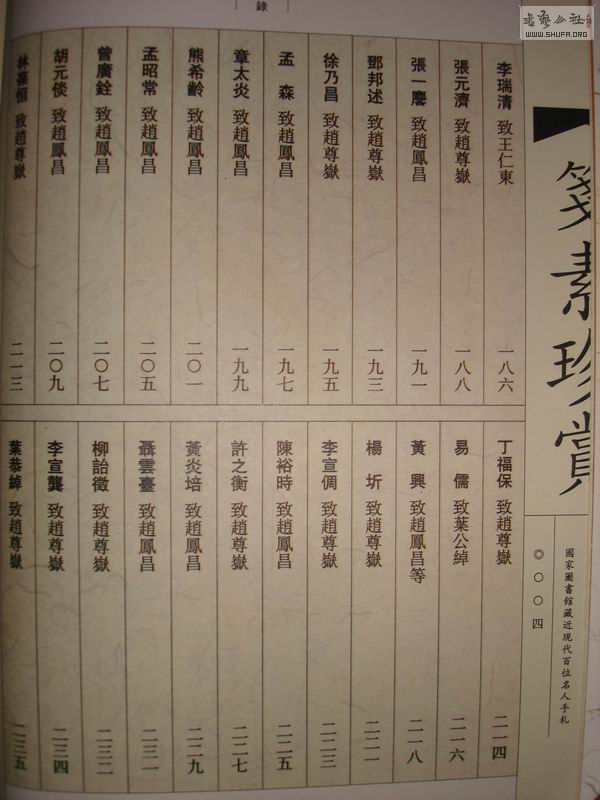 錄
書藝公社
WWW.SHUFA.ORG
箋素珍賞
國家圖書館藏近現代百位名人手札
〇〇〇四
李瑞清 致王仁東 一八六
張元濟 致趙尊嶽 一八八
張一麐 致趙鳳昌 一九一
鄧邦述 致趙尊嶽 一九三
徐乃昌 致趙尊嶽 一九五
孟森 致趙鳳昌 一九七
章太炎 致趙鳳昌 一九九
熊希齡 致趙鳳昌 二〇一
孟昭常 致趙鳳昌 二〇五
曾廣銓 致趙鳳昌 二〇七
胡元倓 致趙鳳昌 二〇九
林葆恒 致趙尊嶽 二一三
丁福保 致趙尊嶽 二一四
易儒 致葉公綽 二一六
黃興 致趙鳳昌等 二一八
楊圻 致趙尊嶽 二二一
李宣倜 致趙尊嶽 二二三
陳裕時 致趙鳳昌 二二五
許之衡 致趙尊嶽 二二七
黃炎培 致趙鳳昌 二二九
聶雲臺 致趙鳳昌 二三一
柳詒徵 致趙尊嶽 二三二
李宣龔 致趙尊嶽 二三四
葉恭綽 致趙尊嶽 二三五